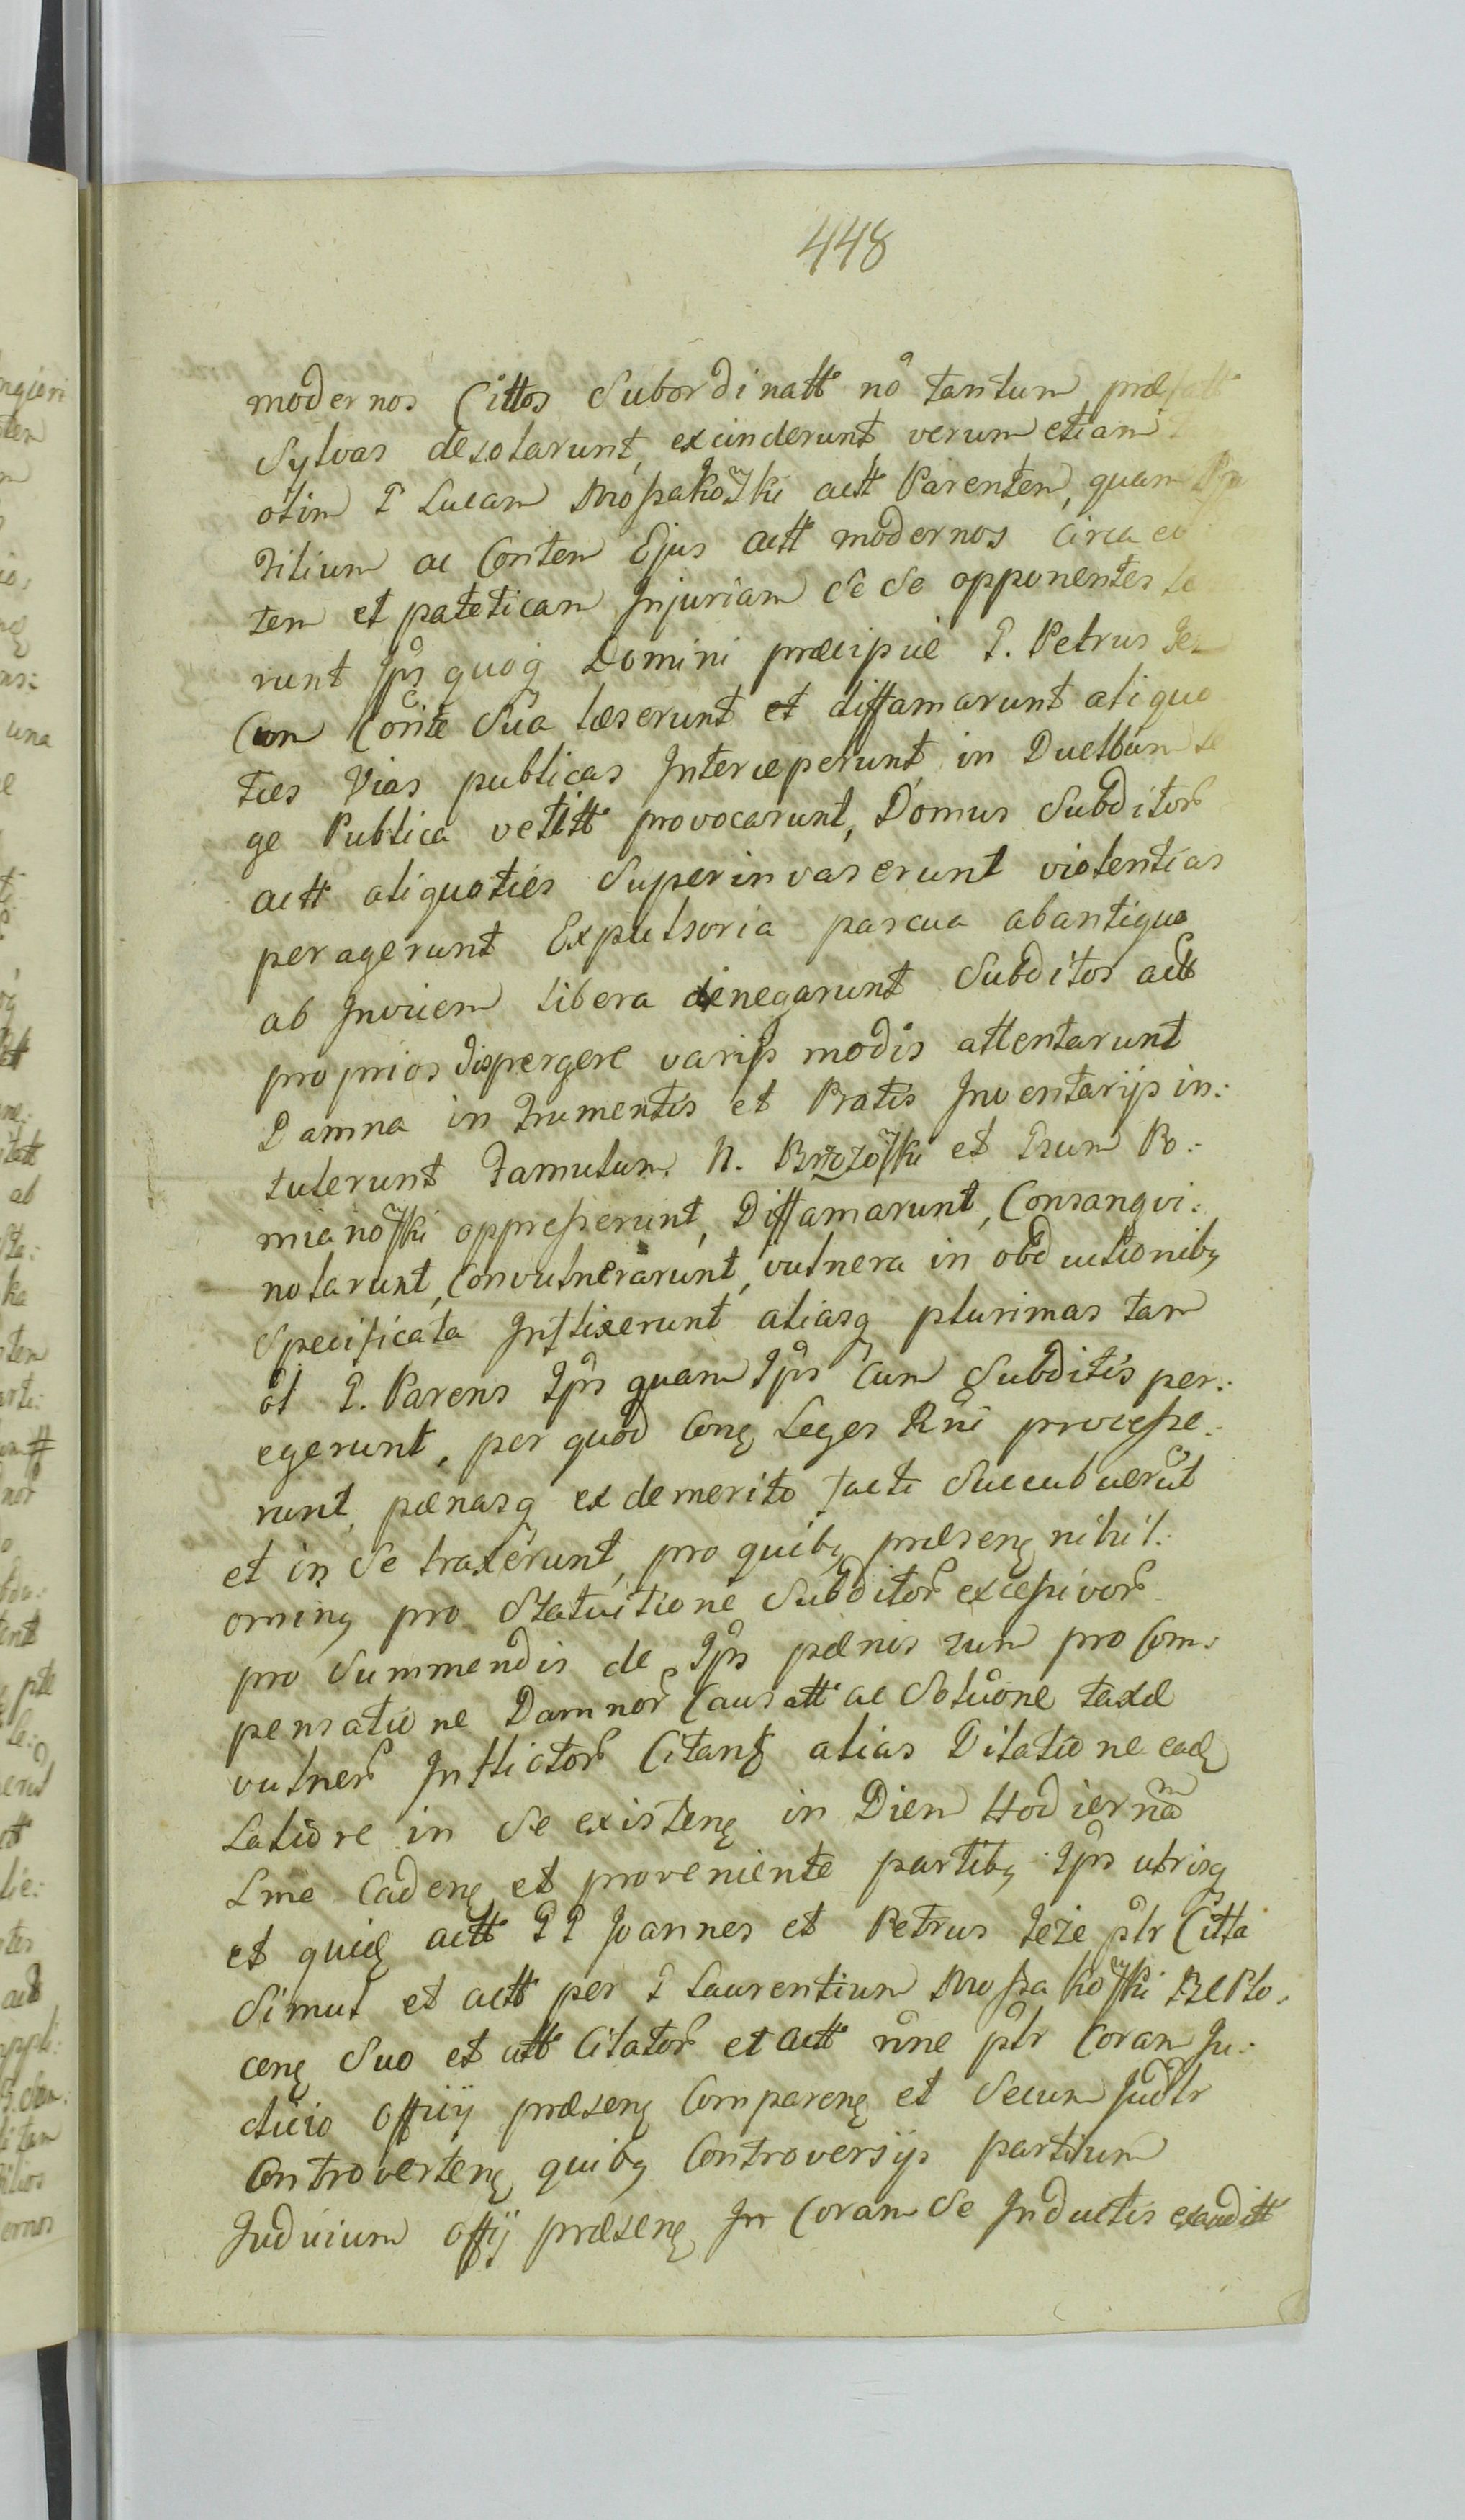 448
modernos Cittos Subordinatt nō tantum præfatt
Sylvas desolarunt, exciderunt verum etiam
olim P Lucam Mossakowski actt Parentem, quam
Filium ac Contem Ejus actt modernos circa
tem et pateticam Injuriam Se Se opponentes
runt Ips quoq Domini præcipue P. Petrus Jez
Cum Conte Sua læserunt et diffamarunt aliquo
ties Vias publicas Interceperunt, in Duellum le
ge Publica vetitt provocarunt, Domus Subditor
actt aliquoties Superinvaserunt violentias
peragerunt Expulsoria pascua abantiquo
ab Invicem libera denegarunt Subditos actt
proprios dispergere varijs modis attentarunt
Damna in Frumentis et Pratis Inventarijs in:
tulerunt Famulum N. Brzozowski et Psum Ro:
mianowski oppresserunt, Diffamarunt, Consangvi:
nolarunt, Convulnerarunt, vulnera in obductioniby
Specificata Inflixerunt aliasq plurimas tam
ol P. Parens Ips quam Ips Cum Subditis per:
egerunt, per quod Conę Leges Rni processe:
runt, pænasq ex demerito facti Succubuerūt
et in Se traxerunt, pro quiby præsenę nihil:
ominę pro Statuitione Subditor excessivor
pro Summendis de Ips pænis tum pro Com:
pensatione Damnor Causatt ac Solūone taxæ
vulner Inflictor Citant alias Dilatione eadę
Latiore in Se existenę in Diem Hodiernam
Lme Cadenę et proveniente partiby Ips utrisq
et quidę actt PP Joannes et Petrus Jeże pltr Citta
Simul et actt per P Laurentium Mossakowski Plo:
cenę Suo et att Citator et actt nine pltr Coram Ju:
dicio Officij præsenę Comparenę et Secum Judltr
Controvertenę quiby Controversijs partium
Judicium Offij præsenę In Coram Se Inductis exauditt